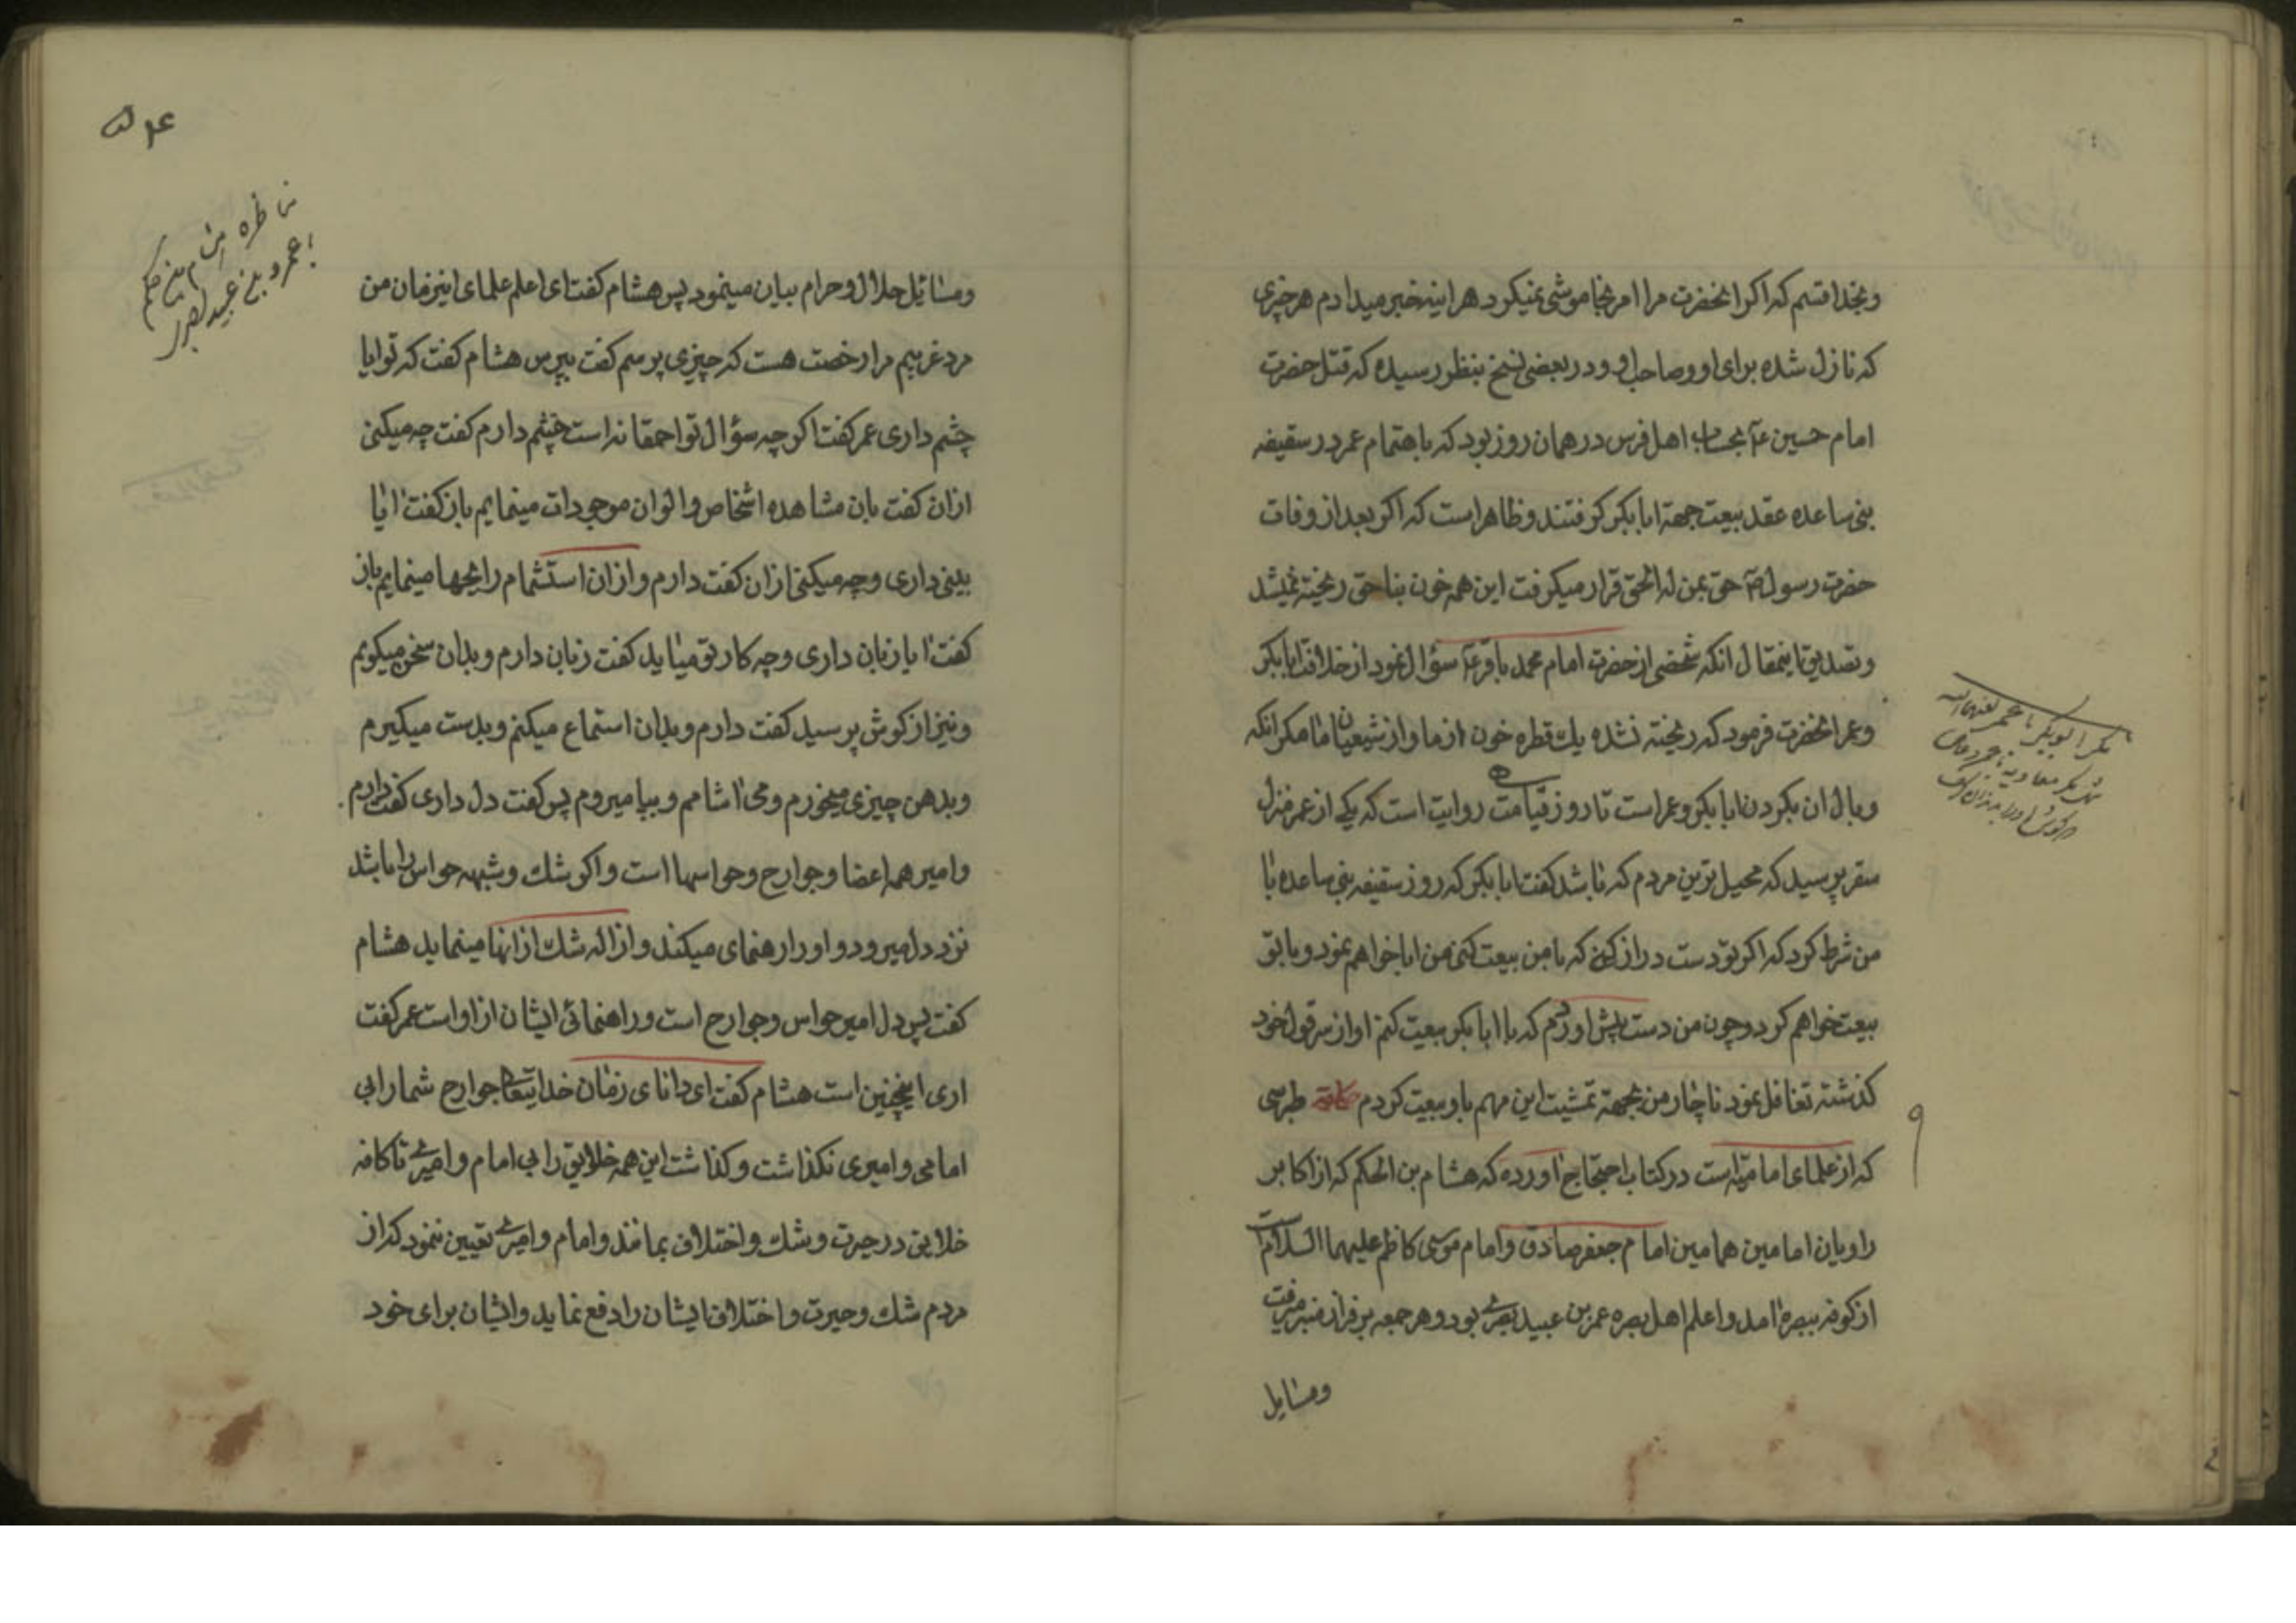 وبخدا قسم که اکر انحضرت مرا امر بخاموشی نمیکرد هراینه خبر میدادم هر چیزی
که نازل شده برای او و صاحب او و در بعضی نسخ بنظور رسیده که قتل حضرت
امام حسین ع بحساب اهل فرس در همان روز بود که باهتمام عمر در سقیفه
بنی ساعده عقد بیعت جهة ابابکر کرفتند و ظاهر است که اکر بعد از وفات
حضرت رسول ص حق بمن له الحق قرار میکرفت این همه خون بناحق ریخته نمیشد
وتصدیق اینمقال انکه شخصی از حضرت امام محمد باقر ع سؤال نمود از خلافت ابابکر
وعمر انحضرت فرمود که ریخته نشده یك قطره خون از ما و از شیعیان ما مکر انکه
وبال ان بکردن ابابکر وعمر است تا روز قیامت روایت است که یکی از عمر منزل
سقر پرسید که محیل ترین مردم که باشد کفت ابابکر که روز سقیفه بنی ساعده با
من شرط کرد که اکر تو دست دراز کنی که با من بیعت کنی من ابا خواهم نمود و با تو
بیعت خواهم کرد و چون من دست پیش اوردم که با ابابکر بیعت کنم او از سر قول خود
کذشته تغافل نمود ناچار من بجهة تمشیت این مهم باو بیعت کردم طبرسی
که از علمای امامیه است در کتاب احتجاج اورده که هشام بن الحکم که از اکابر
راویان امامین همامین امام جعفر صادق و امام موسی کاظم علیهما السلام است
از کوفه ببصره امد و اعلم اهل بصره عمر بن عبید بصری بود و هر جمعه بر فراز منبر میرفت
ومسایل
مکر ابوبکر با عمر لعنهما الله
ومسائل حلال و حرام بیان مینمود پس هشام کفت ای اعلم علمای اینزمان من
مرد غریبم مرا رخصت هست که چیزی پرسم کفت بپرس هشام کفت که تو ایا
چشم داری عمر کفت اکر چه سؤال تو احمقانه است چشم دارم کفت چه میکنی
ازان کفت بان مشاهده اشخاص و الوان موجودات مینمایم باز کفت ایا
بینی داری و چه میکنی ازان کفت دارم و ازان استشمام رایحها مینمایم باز
کفت ایا زبان داری و چه کار تو میاید کفت زبان دارم و بدان سخن میکویم
ونیز از کوش پرسید کفت دارم و بدان استماع میکنم و بدست میکیرم
وبدهن چیزی میخورم و می اشامم و بپا میروم پس کفت دل داری کفت دارم
وامیر همه اعضا و جوارح و حواسها است و اکر شك و شبهه حواس را باشد
نزد دل میرود و او را رهنمای میکند و ازاله شك از انها مینماید هشام
کفت پس دل امیر حواس و جوارح است و راهنمائی ایشان از او است عمر کفت
اری اینچنین است هشام کفت ای دانای زمان خدایتعالی جوارح شما را بی
امامی و امیری نکذاشت و کذاشت این همه خلایق را بی امام و امیری تا کافه
خلایق در حیرت و شك و اختلاف بمانند و امام و امیری تعیین ننمود که از
مردم شك و حیرت و اختلاف ایشان را دفع نماید و ایشان برای خود
مناظره هشام بن حکم
با عمرو بن عبید بصری